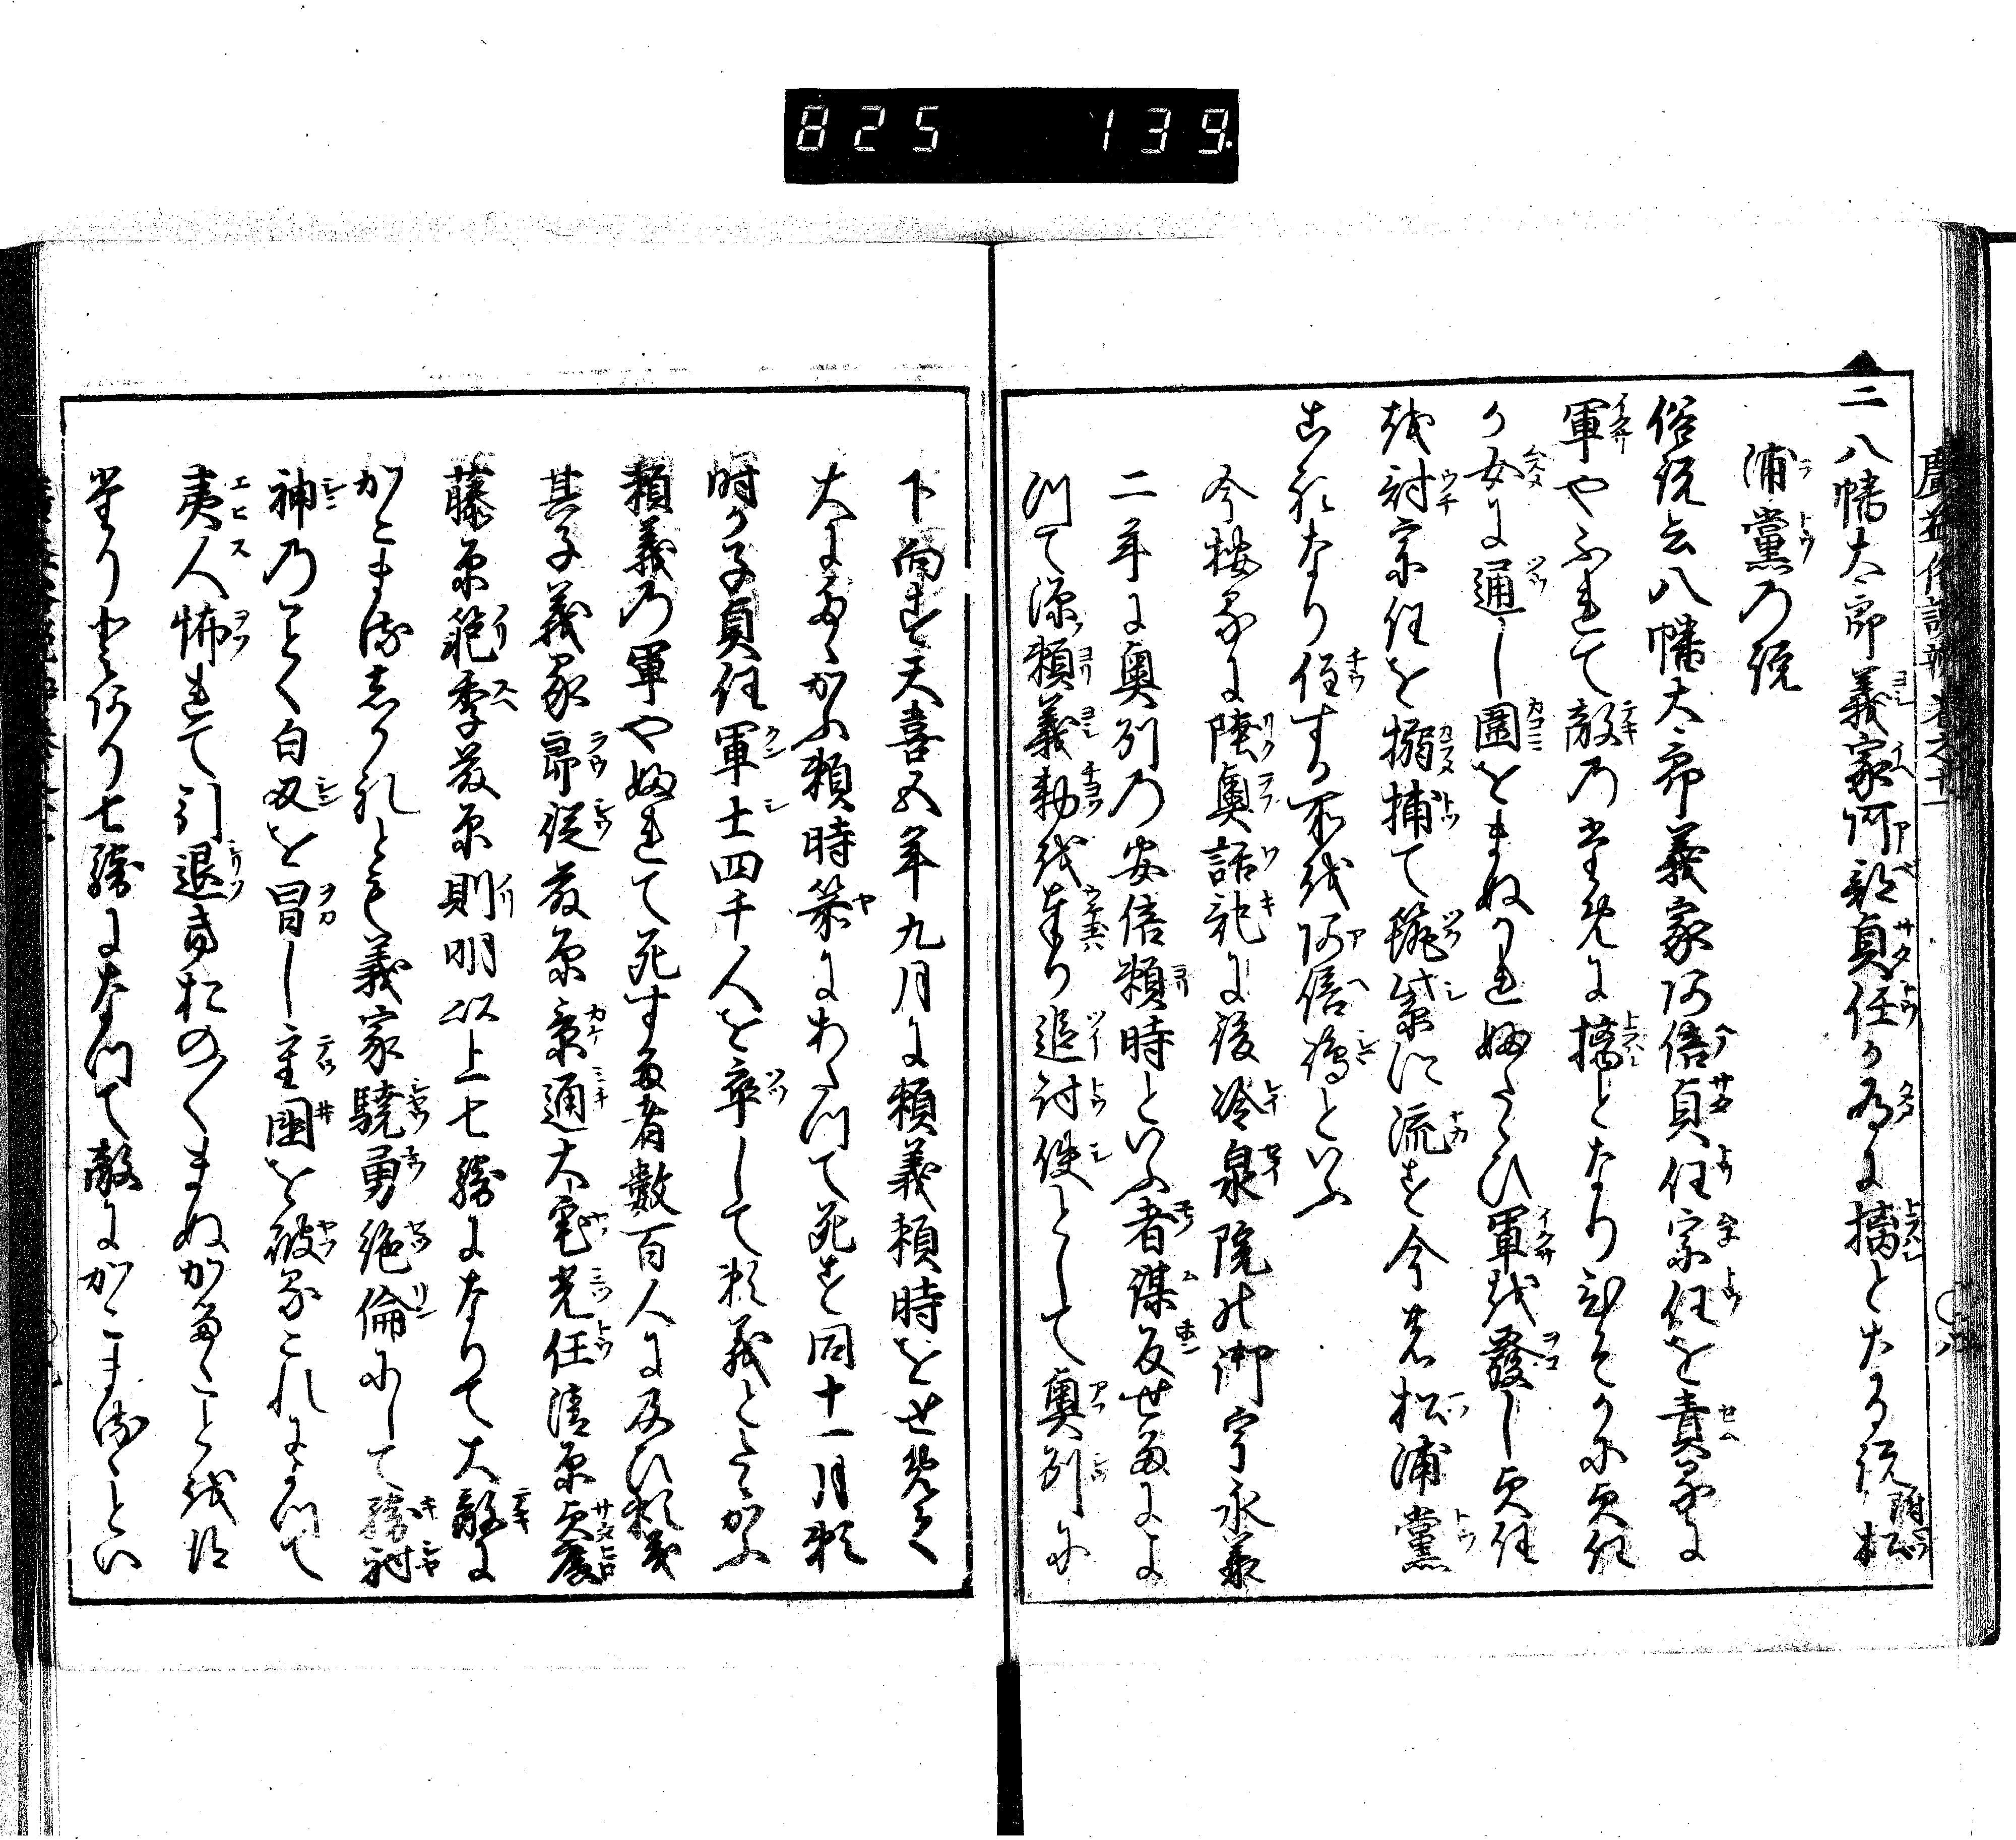 825 139
廣益俗説辨巻之十一
二八幡太郎義家阿部貞任か為に擒となる説附松
浦黨の説
俗説云八幡太郎義家阿倍貞任宗任を責るに
軍やふれて敵のために擒となりひそかに貞任
か女に通し圍をまぬかれ婦たゝひ軍を發し貞任
を討宗任を搦捕て筑紫に流す今の松浦黨
これなり住する所を阿倍嶋といふ
今按るに陸奥話記に後冷泉院の御宇永兼
二年に奥列の安倍頼時といふ者謀反せるによ
つて源頼義勅をうけ給り追討使として奥列に
下向す天喜五年九月に頼義頼時をせめて
大にたゝかふ頼時箭にあたつて死す同十一月頼
時か子貞任軍士四千人を率して頼義とたゝかふ
頼義の軍やぶれて死する者數百人に及ひ頼義
其子義家郎從藤原景通大宅光任清原貞廣
藤原範季藤原則明以上七騎になりて大敵に
かこまるしかれとも義家驍勇絶倫にして騎射
神のことく白刄を冒し重圍を破るこれによつて
夷人怖れて引退きおの〱まぬかるゝことを得
たりとあり七騎になつて敵にかこまるゝとい